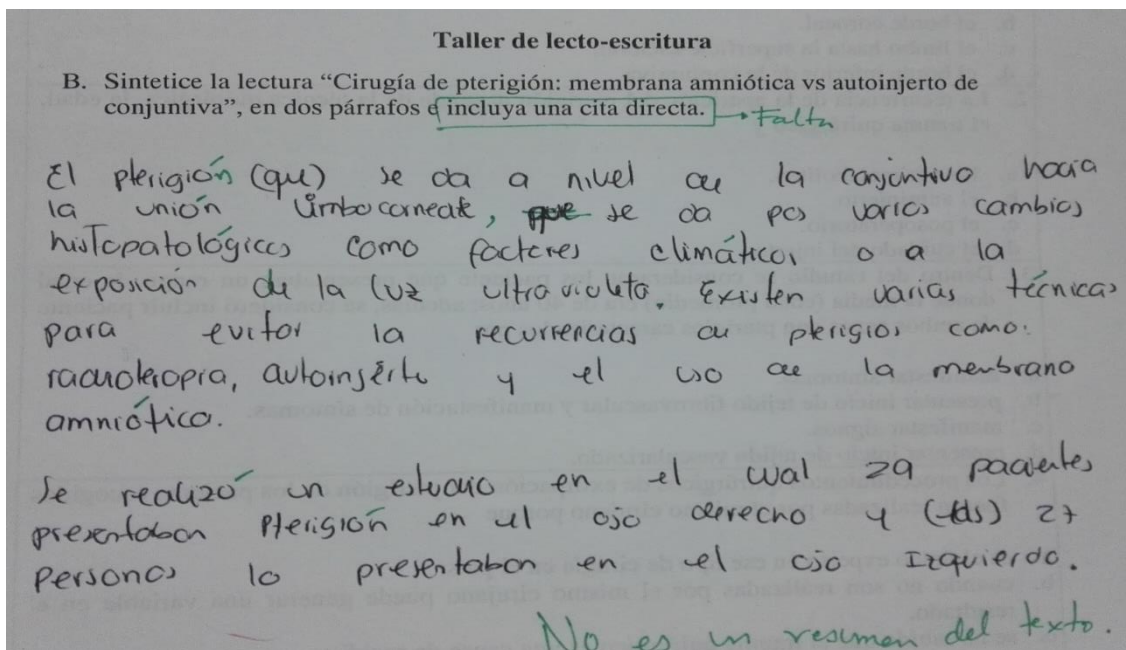 Taller de lecto-escritura
B. Sintetice la lectura “Cirugía de pterigión: membrana amniótica vs autoinjerto de
conjuntiva”, en dos párrafos e incluya una cita directa. → Falta
El pterigión (que) se da a nivel de la conjuntiva hacia
la unión limbocorneal, que se da por varios cambios
histopatológicos como factores climáticos o a la
exposición de la luz ultravioleta. Existen varias técnicas
para evitar la recurrencias de pterigios como:
radioterapia, autoinjérto y el uso de la membrana
amniótica.
Se realizó un estudio en el cual 29 pacientes
presentaban Pterigión en el ojo derecho y (tds) 27
personas lo presentaban en el ojo Izquierdo.
No es un resumen del texto.